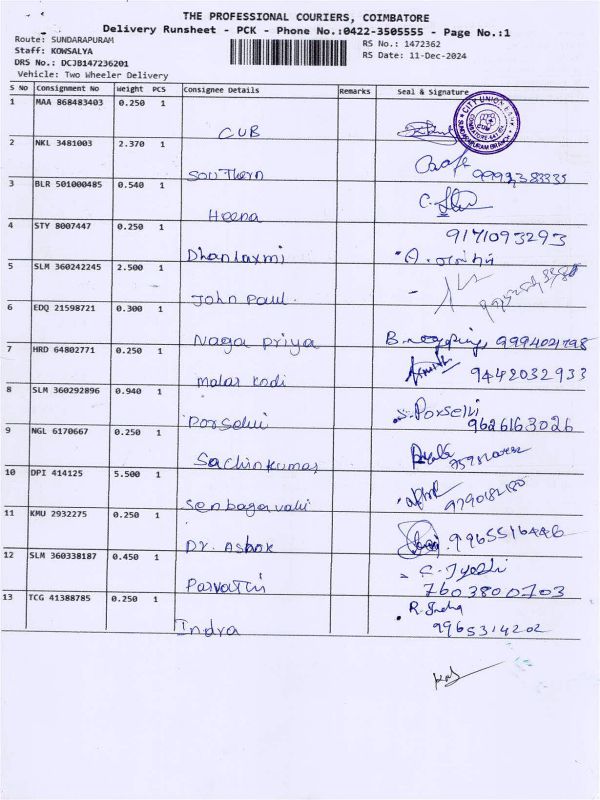 THE PROFESSIONAL COURIERS, COIMBATORE
Delivery Runsheet - PCK - Phone No.:0422-3505555 - Page No.:1
Route: SUNDARAPURAM
RS No.: 1472362
Staff: KOWSALYA
RS Date: 11-Dec-2024
DRS No.: DCJB147236201
Vehicle: Two Wheeler Delivery
S No Consignment No Weight PCS Consignee Details Remarks Seal & Signature
1 MAA 868483403 0.250 1
CUB
CITY UNION
2 NKL 3481003 2.370 1
Southern
3 BLR 501000485 0.540 1
Heena
4 STY 8007447 0.250 1 9171093293
Dhanlaxmi
5 SLM 360242245 2.500 1
John Paul
6 EDQ 21598721 0.300 1
Naga Priya
7 HRD 64802771 0.250 1 9442032933
Malar Kodi
8 SLM 360292896 0.940 1 S. Porselvi
Porselvi 9626163026
9 NGL 6170667 0.250 1
Sachinkumar
10 DPI 414125 5.500 1
Senbagavalli
11 KMU 2932275 0.250 1 9965516446
Dr. Ashok
12 SLM 360338187 0.450 1
Parvathi 7603800703
13 TCG 41388785 0.250 1 R. Indra
Indra 9965314202